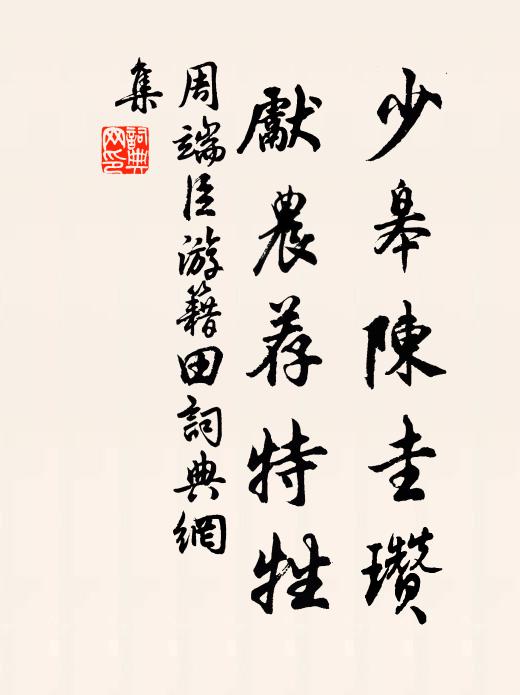 少皋陳圭瓚
獻農荐特牲
周端臣游籍田詞典網
集
詞典
网印